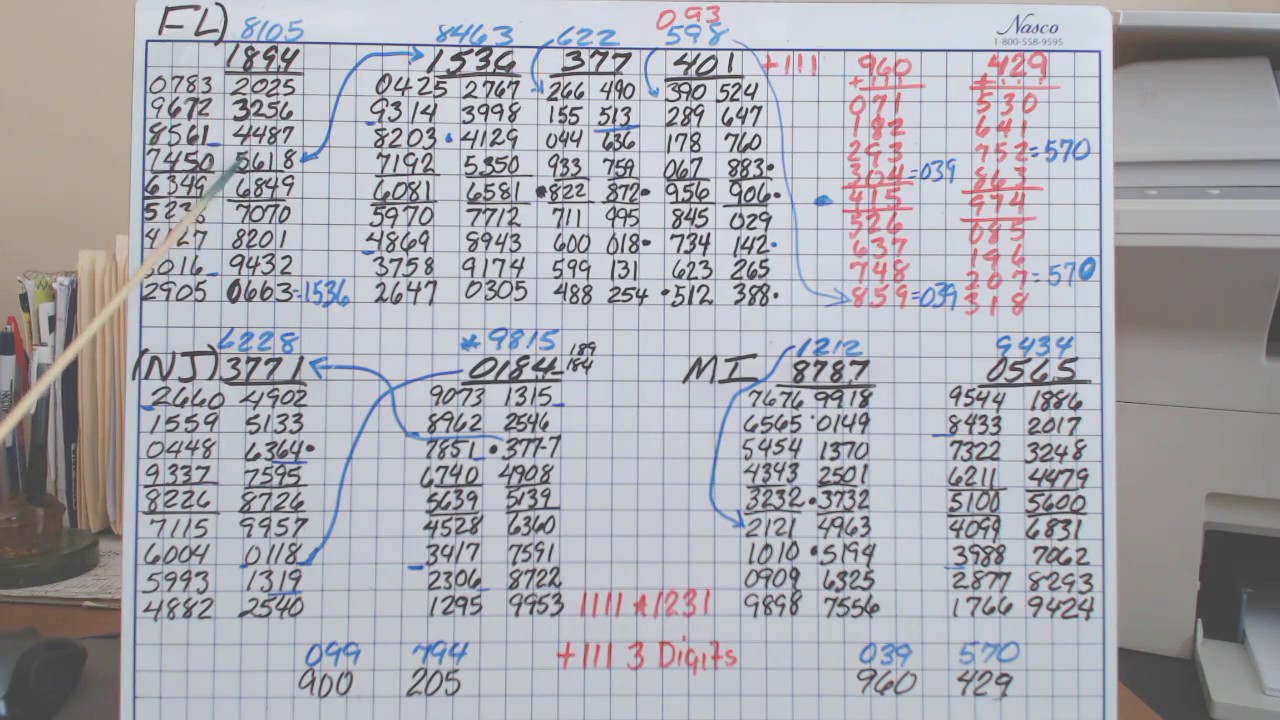 FL) 8105 8463 622 093 598
Nasco
1-800-558-9595
1894 1536 377 401 +111 960 429
+111 +111
0783 2025 0425 2767 266 490 390 524 071 530
9672 3256 9314 3998 155 513 289 647 182 641
8561 4487 8203 4129 044 636 178 760 293 752=570
7450 5618 7192 5350 933 759 067 883 304=039 863
6349 6849 6081 6581 822 872 956 906 415 974
7070 5970 7712 711 995 845 029 526 085
8201 4869 8943 600 018 734 142 637 196
9432 3758 9174 599 131 623 265 748 207=570
2905 0663=1536 2647 0305 488 254 512 388 859=039 318
(NJ) 6228 *9815 MI 1212 9434
3771 0184 189 184 8787 0565
2660 4902 9073 1315 7676 9918 9544 1886
1559 5133 8962 2546 6565 0149 8433 2017
0448 6364 7851 3777 5454 1370 7322 3248
9337 7595 6740 4908 4343 2501 6211 4479
8226 8726 5639 5139 3232 3732 5100 5600
7115 9957 4528 6360 2121 4963 4099 6831
6004 0118 3417 7591 1010 5194 3988 7062
5993 1319 2306 8722 0909 6325 2877 8293
4882 2540 1295 9953 1111 * 1231 9898 7556 1766 9424
099 794 +111 3 Digits 039 570
900 205 960 429